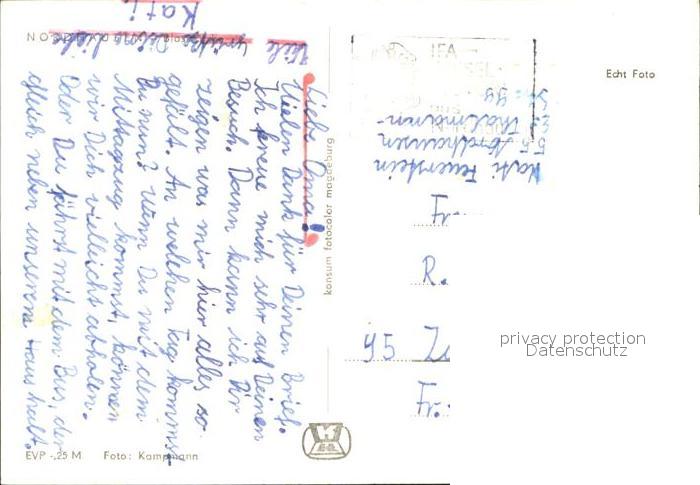 Liebe Oma!
Vielen Dank für Deinen Brief.
Ich freue mich sehr auf Deinen
Besuch. Dann kann ich Dir
zeigen was mir hier alles so
gefällt. An welchen Tag kommst
Du nun? Wenn Du mit dem
Mittagzug kommst, können
wir Dich vielleicht abholen.
Oder Du fährst mit dem Bus, der
gleich neben unserem Haus hält.
Viele Grüße Deine liebe
Kati
konsum fotocolor magdeburg
EVP -,25 M
Foto: Kampmann
Echt Foto
IFA
Kati Feuerstein
55 Nordhausen
E. Thälmann-
Str. 99
Fr.
R.
95 Z
Fr.
privacy protection
Datenschutz